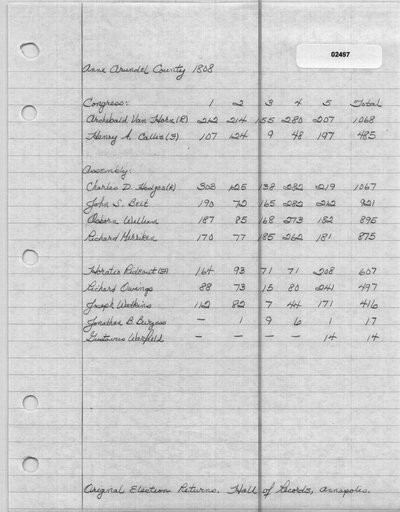 02497
Anne Arundel County 1808
Congress: 1 2 3 4 5 Total
Archibald Van Horn (R) 212 214 155 280 207 1068
Henry A. Callis (F) 107 124 9 48 197 485
Assembly:
Charles D. Hodges (R) 303 125 138 282 219 1067
John S. Belt 190 72 165 282 212 921
Osborn Williams 187 85 168 273 182 895
Richard Merriken 170 77 185 262 181 875
Horatio Rideout (F) 164 93 71 71 208 607
Richard Owings 88 73 15 80 241 497
Joseph Watkins 112 82 7 44 171 416
Jonathan B. Burgess — 1 9 6 1 17
Gustavus Warfield — — — — 14 14
Original Election Returns. Hall of Records, Annapolis.